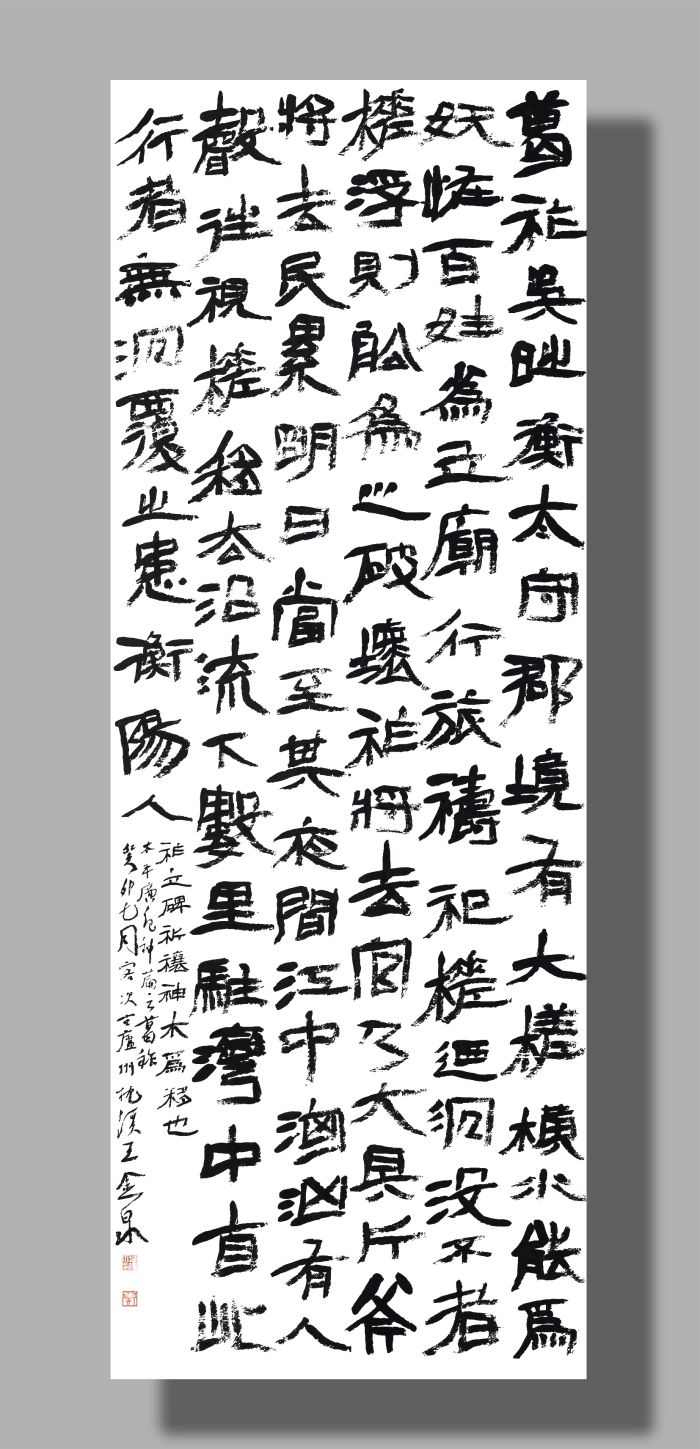 葛祚吳時衡太守郡境有大槎橫水能爲
妖怪百姓爲立廟行旅禱祀槎迺沉沒不者
槎浮則船爲之破壞祚將去官乃大具斤斧
將去民累明日當至其夜間江中洶洶有人
聲往視槎移去沿流下數里駐灣中自此
行者無沉覆之患衡陽人
祚立碑祈禳神木爲移也
太平廣記神篇之葛祚
癸卯七月客次古廬州王金泉